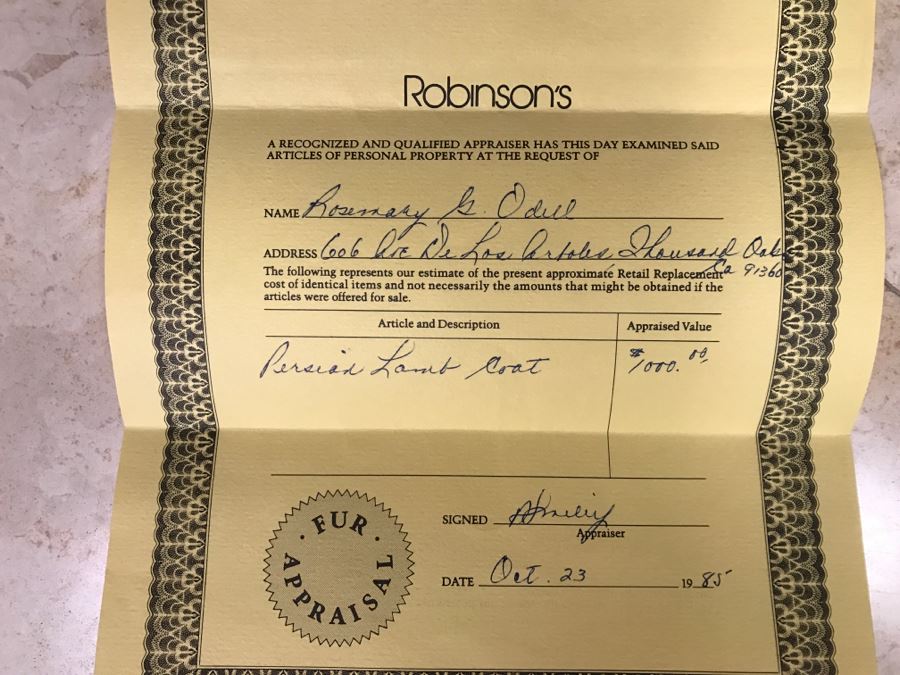 Robinson's
A RECOGNIZED AND QUALIFIED APPRAISER HAS THIS DAY EXAMINED SAID
ARTICLES OF PERSONAL PROPERTY AT THE REQUEST OF
NAME Rosemary G. Odell
ADDRESS 606 Ave De Los Arboles Thousand Oaks
Ca 91360
The following represents our estimate of the present approximate Retail Replacement
cost of identical items and not necessarily the amounts that might be obtained if the
articles were offered for sale.
Article and Description Appraised Value
Persian Lamb Coat $1000.00
SIGNED
Appraiser
DATE Oct. 23 1985
FUR APPRAISAL